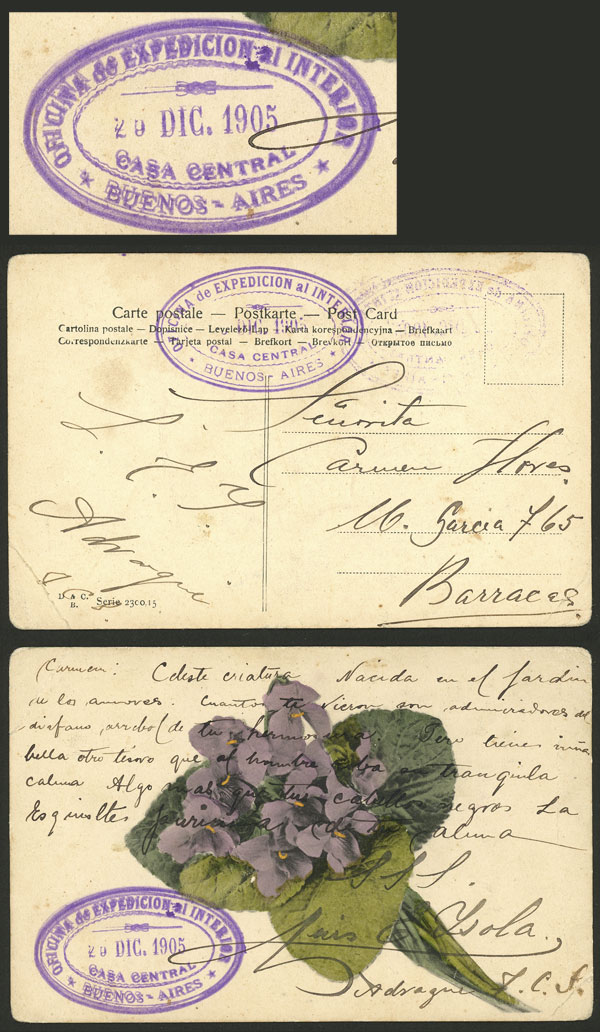 OFICINA de EXPEDICION al INTERIOR
29 DIC. 1905
CASA CENTRAL
BUENOS - AIRES
Carte postale — Postkarte — Post Card
Cartolina postale — Dopisnice — Levelező-Lap — Karta korespondencyjna — Briefkaart
Correspondenzkarte — Tarjeta postal — Brefkort — Brevkort — Открытое письмо
OFICINA de EXPEDICION al INTERIOR
DIC. 1905
CASA CENTRAL
BUENOS - AIRES
Señorita
Carmen Flores
M. Garcia 765
Barracas
Adrogué
D. & C.
B. Serie 2300,15
Carmen: Celeste criatura Nacida en el jardin
de los amores. Cuantos te vieron son admiradores del
diafano arrebol de tu hermosura. Pero tienes
bella otro tesoro que al hombre roba su tranquila
calma Algo mas que tus cabellos negros La
de tu alma
S.S.S.
Luis Ysola.
Adrogué F.C.S.
OFICINA de EXPEDICION al INTERIOR
29 DIC. 1905
CASA CENTRAL
BUENOS - AIRES